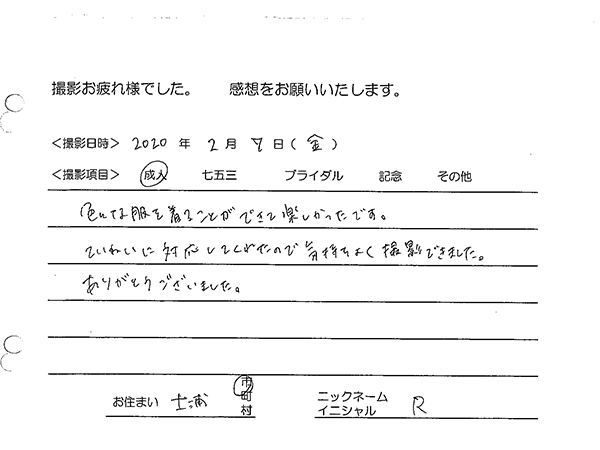 撮影お疲れ様でした。 感想をお願いいたします。
<撮影日時> 2020 年 2 月 7 日 ( 金 )
<撮影項目> 成人 七五三 ブライダル 記念 その他
色んな服を着ることができて楽しかったです。
ていねいに対応してくれたので気持ちよく撮影できました。
ありがとうございました。
お住まい 土浦 市町村 ニックネーム イニシャル R